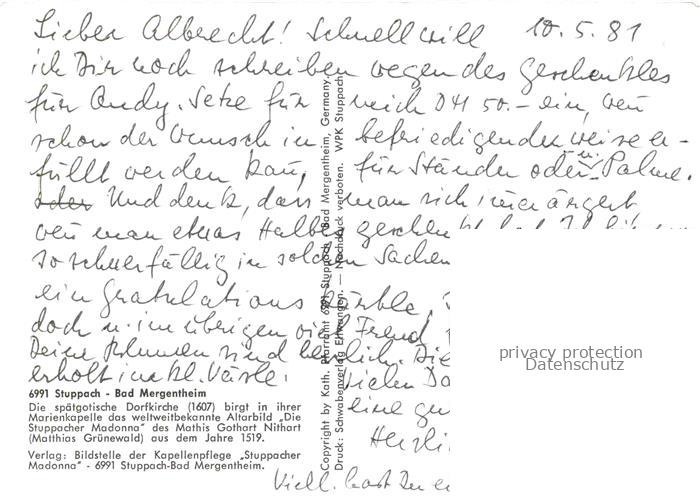 Lieber Albrecht! Schnell will 10.5.81
ich Dir noch schreiben wegen des Geschenkles
für Andy. Setze für mich DM 50.- ein, wen̄
schon der Wunsch in befriedigender weise er-
füllt werden kan̄, für Ständer oder Palme.
Und denk, dass man sich im̄er ärgert
wen̄ man etwas Halbes
so schwerfällig in solchen Sachen
ein Gratulations
doch u. im übrigen viel Freud
Deine Blumen sind herrlich. Die
erholt im kl. Väsle. Vielen Da
eine gu
Herzli
Viell. hast Du e
privacy protection
Datenschutz
6991 Stuppach - Bad Mergentheim
Die spätgotische Dorfkirche (1607) birgt in ihrer
Marienkapelle das weltweitbekannte Altarbild „Die
Stuppacher Madonna" des Mathis Gothart Nithart
(Matthias Grünewald) aus dem Jahre 1519.
Verlag: Bildstelle der Kapellenpflege „Stuppacher
Madonna" - 6991 Stuppach-Bad Mergentheim.
Copyright by Kath. Pfarramt 6991 Stuppach, Bad Mergentheim, Germany.
Druck: Schwabenverlag Ellwangen. — Nachdruck verboten. WPK Stuppach